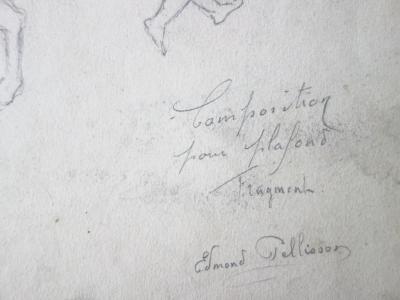 Composition
pour plafond
Fragment.
Edmond Pellisson